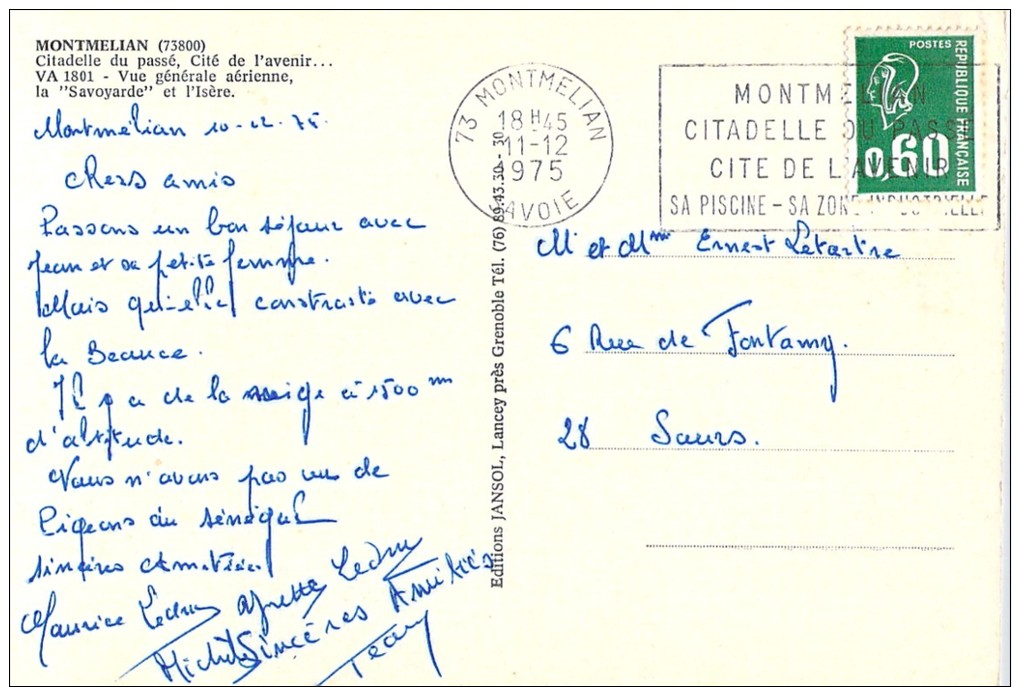 MONTMELIAN (73800)
Citadelle du passé, Cité de l'avenir...
VA 1801 - Vue générale aérienne,
la "Savoyarde" et l'Isère.
Montmélian 10-12-75.
Chers amis
Passons un bon séjour avec
Jean et sa petite femme.
Mais quel contraste avec
la Beauce.
Il y a de la neige à 1500 m
d'altitude.
Nous n'avons pas vu de
Pigeons du Sénégal
Sincères Amitiés
Maurice Ledru Ledru
Michèle Sincères Amitiés
Jean
Editions JANSOL, Lancey près Grenoble Tél. (76) 89.43.30 - 30
73 MONTMELIAN
18 H 45
11-12
1975
SAVOIE
MONTMELIAN
CITADELLE DU PASSE
CITE DE L'AVENIR
SA PISCINE - SA ZONE INDUSTRIELLE
POSTES
REPUBLIQUE FRANÇAISE
0,60
Mr et Mme Ernest Letartre
6 Rue de
28 Sours.